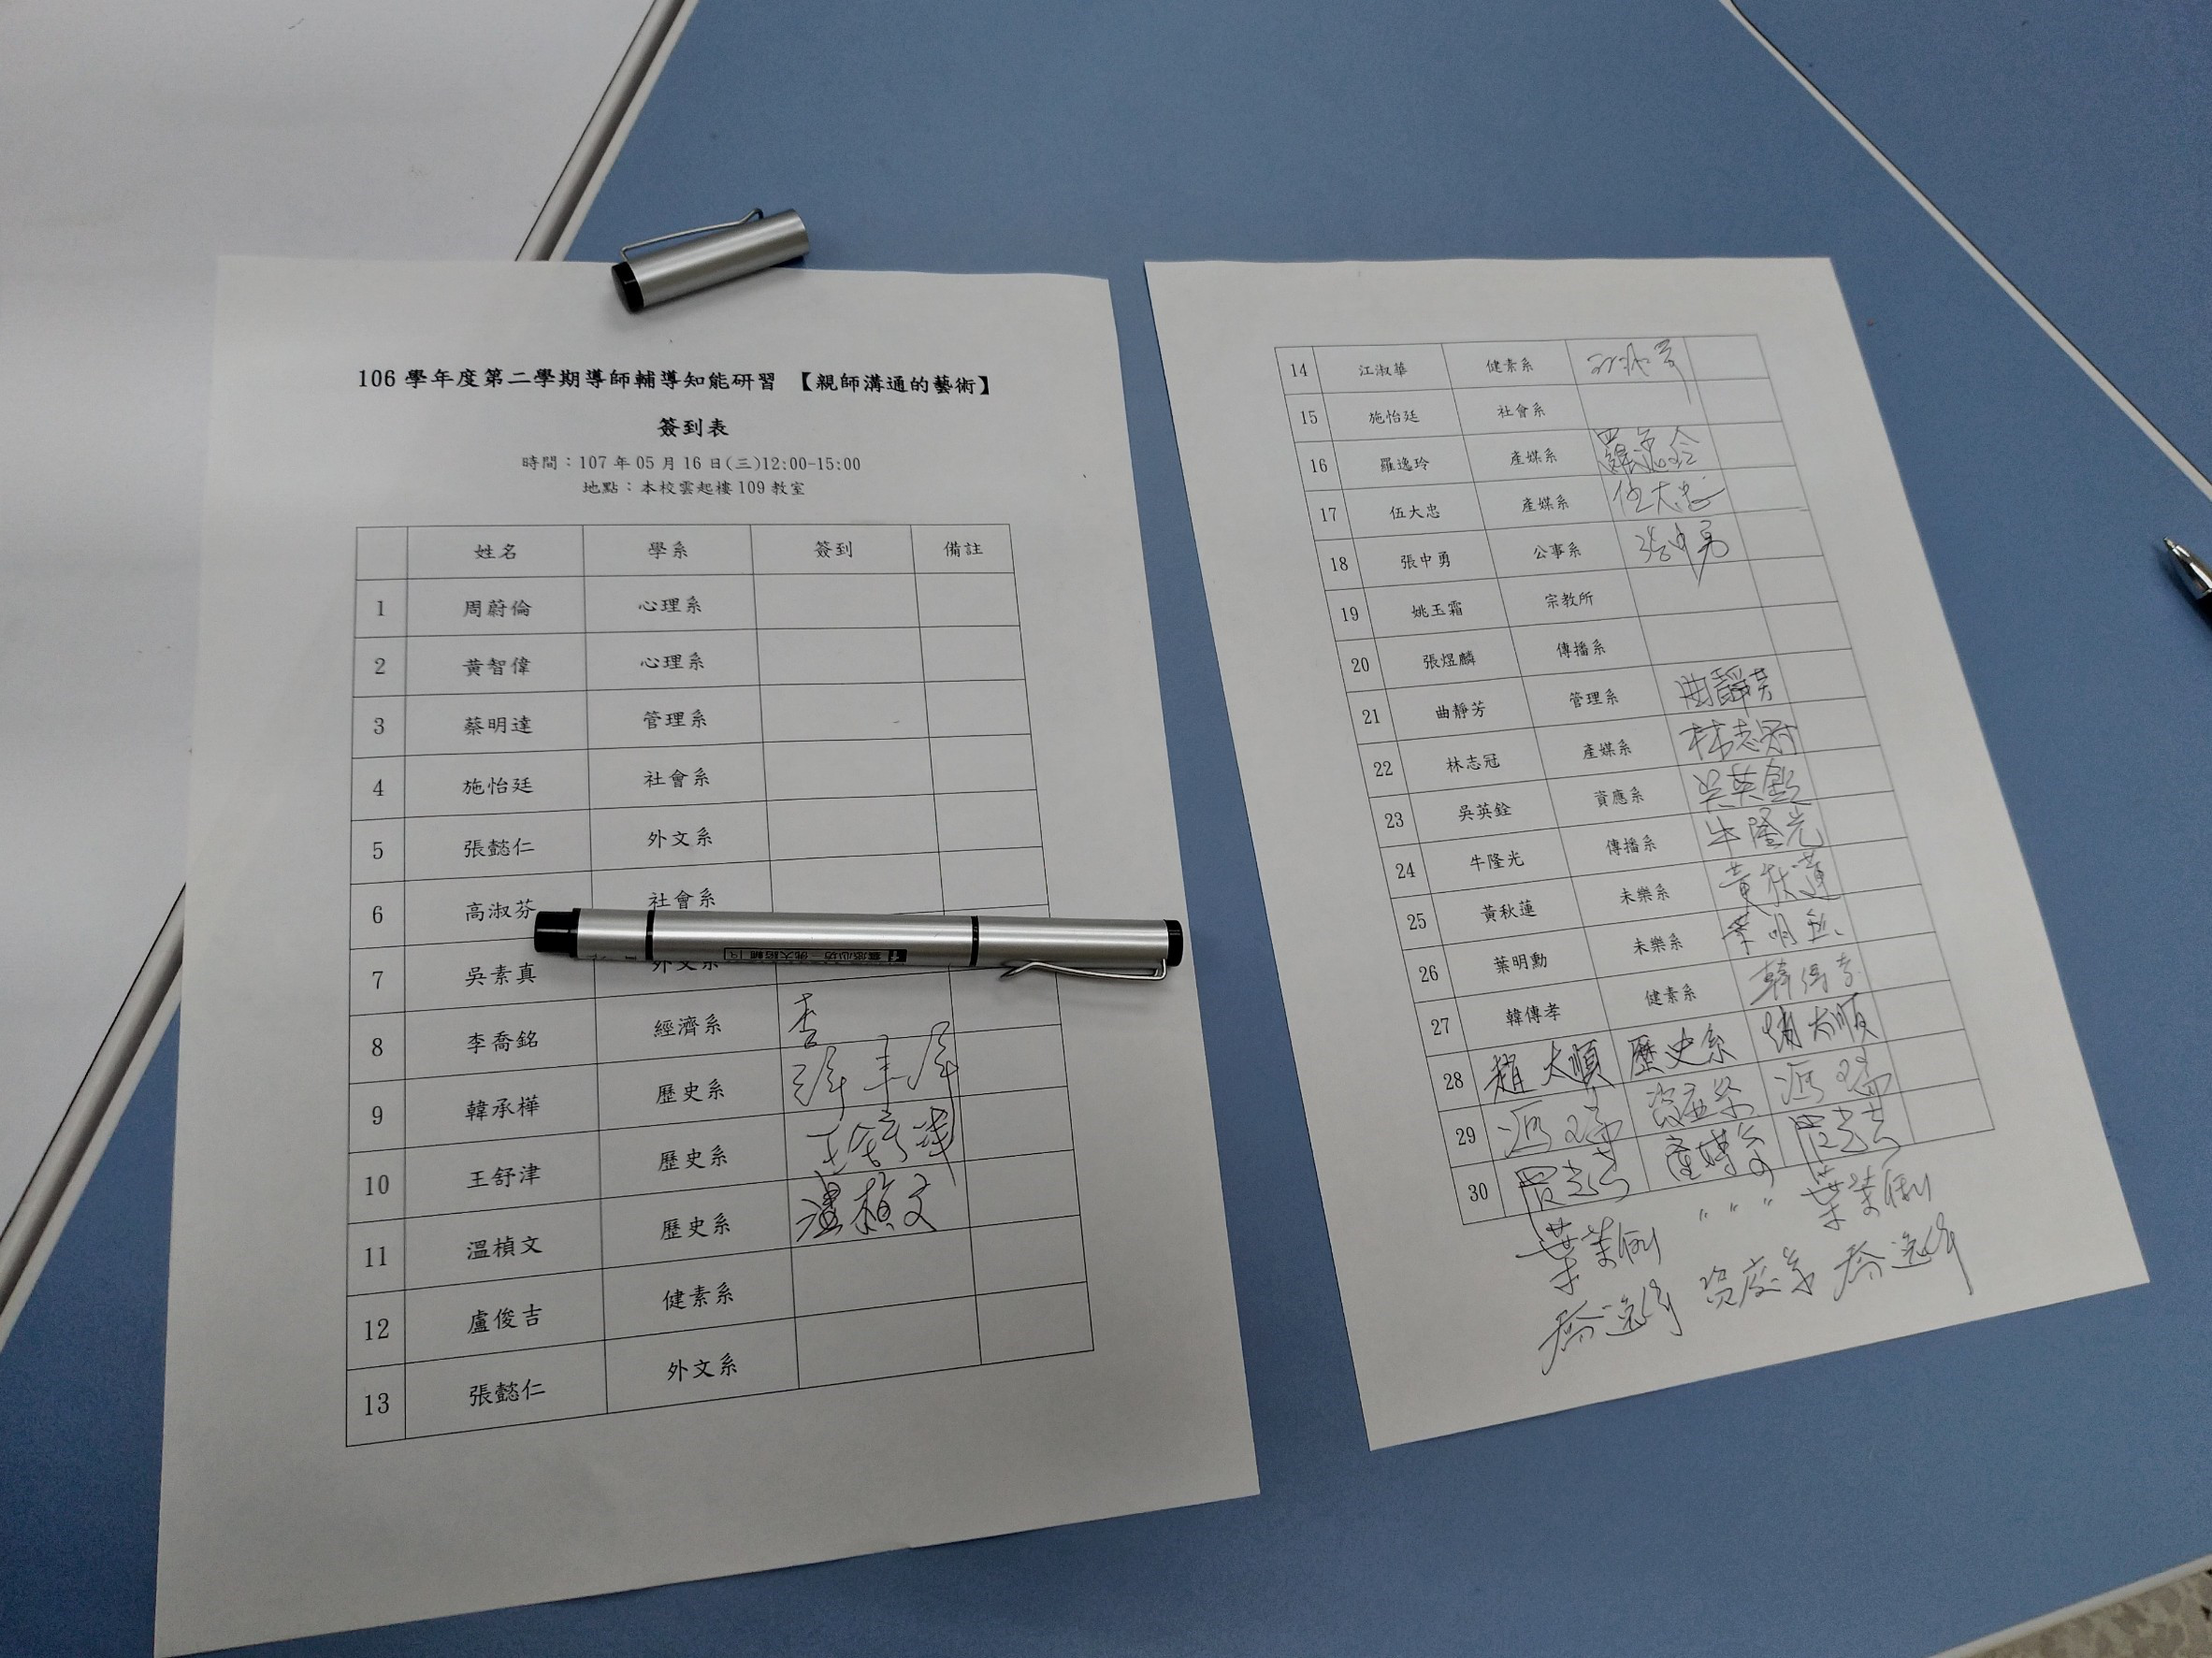 106 學年度第二學期導師輔導知能研習 【親師溝通的藝術】
簽到表
時間：107 年 05 月 16 日(三)12:00-15:00
地點：本校雲起樓 109 教室
姓名 學系 簽到 備註
1 周蔚倫 心理系
2 黃智偉 心理系
3 蔡明達 管理系
4 施怡廷 社會系
5 張懿仁 外文系
6 高淑芬 社會系
7 吳素真 外文系
8 李喬銘 經濟系 李
9 韓承樺 歷史系
10 王舒津 歷史系 王舒津
11 溫楨文 歷史系 溫楨文
12 盧俊吉 健素系
13 張懿仁 外文系
14 江淑華 健素系 江淑華
15 施怡廷 社會系
16 羅逸玲 產媒系 羅逸玲
17 伍大忠 產媒系 伍大忠
18 張中勇 公事系 張中勇
19 姚玉霜 宗教所
20 張煜麟 傳播系
21 曲靜芳 管理系 曲靜芳
22 林志冠 產媒系 林志冠
23 吳英銓 資應系 吳英銓
24 牛隆光 傳播系 牛隆光
25 黃秋蓮 未樂系 黃秋蓮
26 葉明勳 未樂系 葉明勳
27 韓傳孝 健素系 韓傳孝
28 趙太順 歷史系 趙太順
29 馮瑞 資應系 馮瑞
30 產媒系
葉茉俐 " " " 葉茉俐
資應系